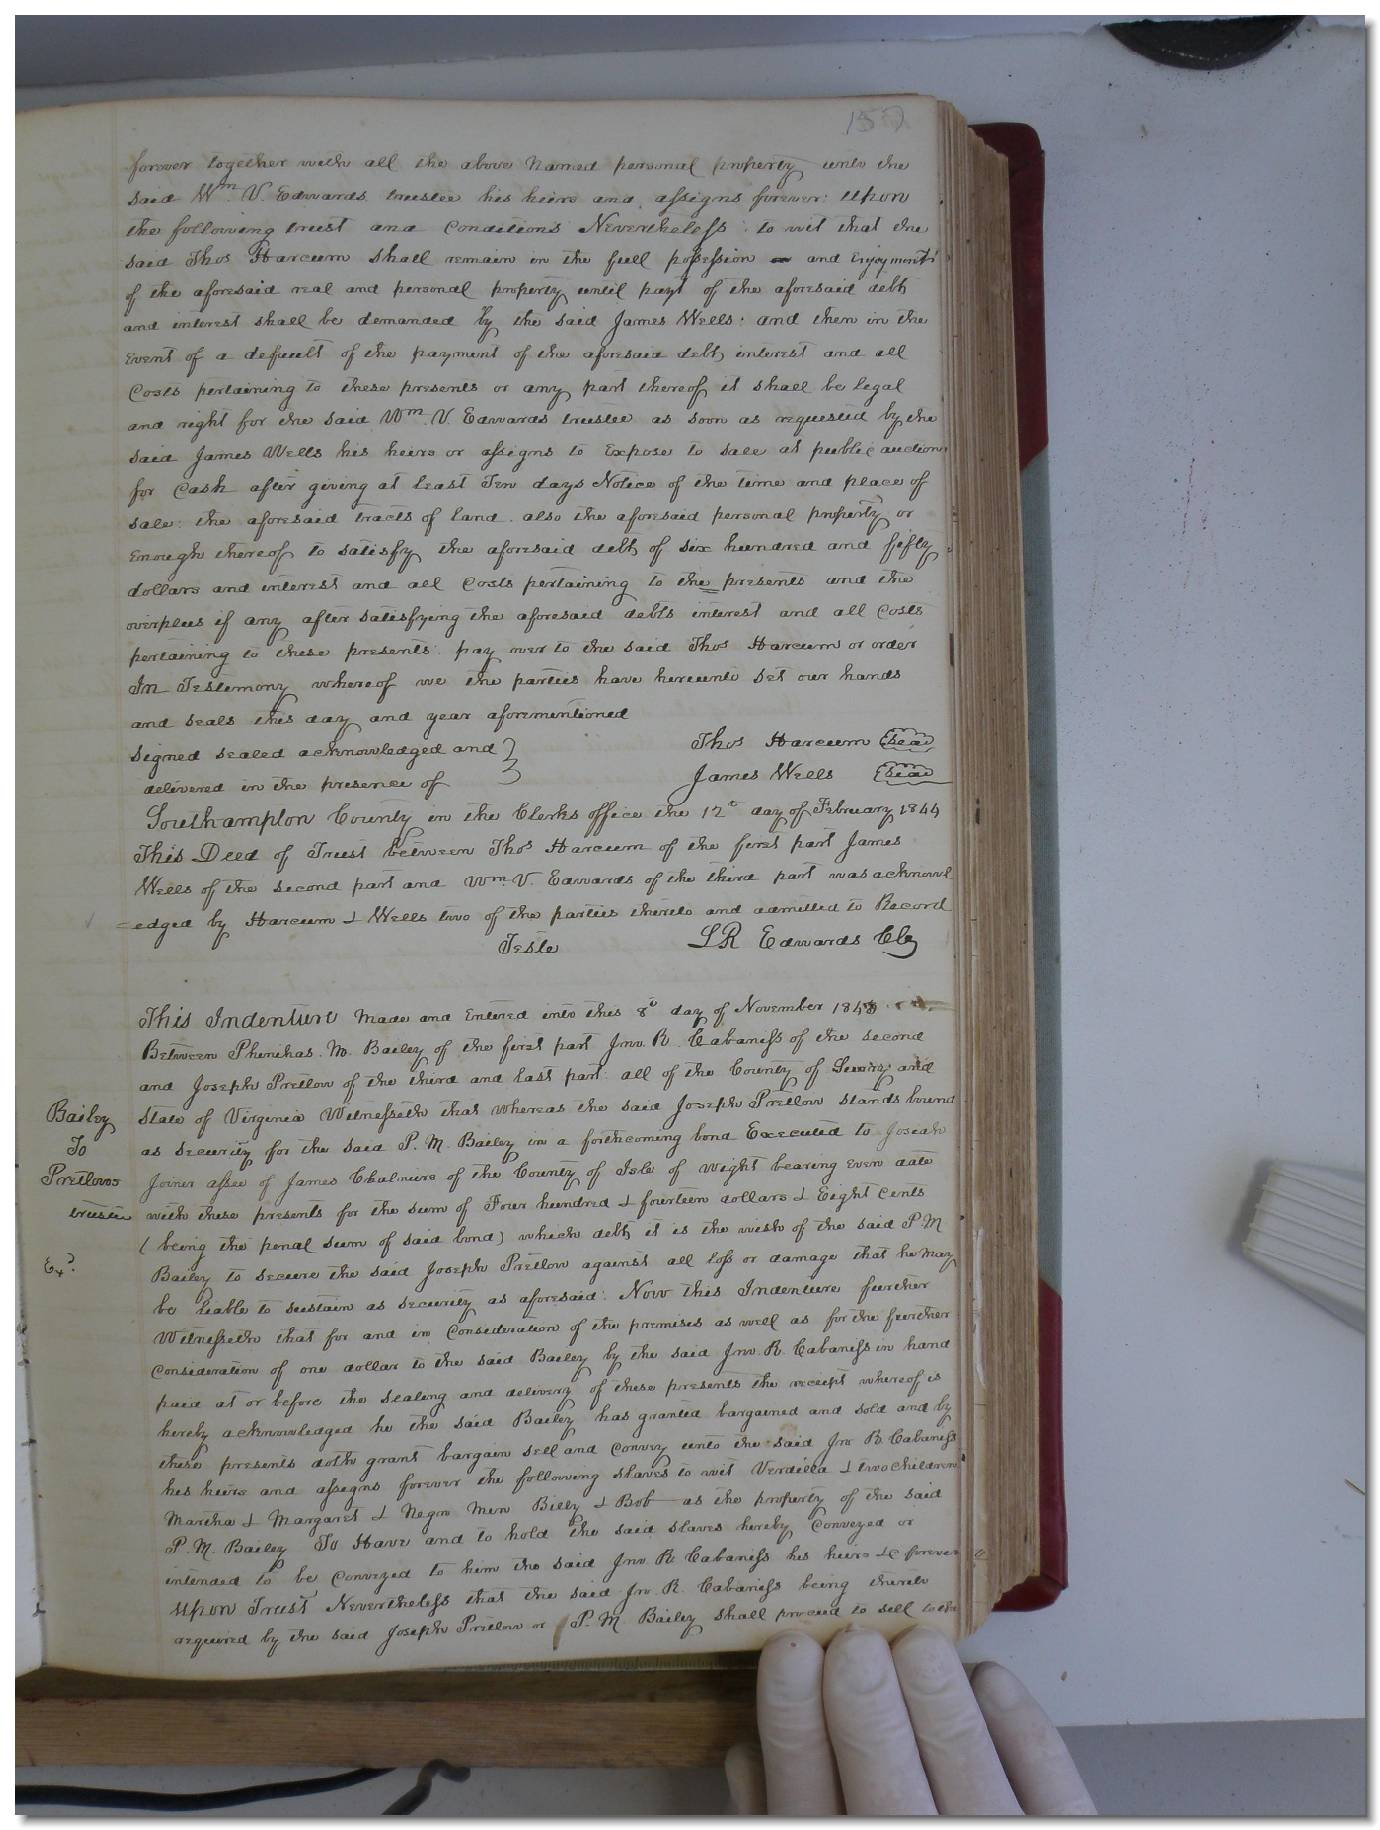 157
forever together with all the above Named personal property unto the
said Wm. V. Edwards trustee his heirs and assigns forever: upon
the following trust and Conditions Nevertheless: to wit that the
said Thos Harcum shall remain in the full possession and Enjoyment
of the aforesaid real and personal property until payt of the aforesaid debt
and interest shall be demanded by the said James Wells: and then in the
Event of a default of the payment of the aforesaid debt, interest and all
Costs pertaining to these presents or any part thereof it shall be legal
and right for the said Wm. V. Edwards trustee as soon as requested by the
said James Wells his heirs or assigns to Expose to sale at public auction
for Cash after giving at least Ten days Notice of the time and place of
sale: the aforesaid tracts of land. also the aforesaid personal property or
Enough thereof to satisfy the aforesaid debt of six hundred and fifty
dollars and interest and all Costs pertaining to the presents and the
overplus if any after satisfying the aforesaid debts interest and all Costs
pertaining to these presents: pay over to the said Thos Harcum or order
In Testimony whereof we the parties have hereunto set our hands
and seals this day and year aforementioned
signed sealed acknowledged and } Thos Harcum Seal
delivered in the presence of James Wells Seal
Southampton County in the Clerks office the 12th day of February 1844
This Deed of Trust between Thos Harcum of the first part James
Wells of the second part and Wm. V. Edwards of the third part was acknowl
=edged by Harcum & Wells two of the parties thereto and admitted to Record
Teste L R Edwards Clk
This Indenture Made and Entered into this 8th day of November 1843
Between Phinihas. M. Bailey of the first part Jno. R. Cabaniss of the second
and Joseph Pretlow of the third and last part: all of the County of Surry and
Bailey
To
Pretlows
trustee
Exd.
State of Virginia Witnesseth that whereas the said Joseph Pretlow stands bound
as security for the said P. M. Bailey in a forthcoming bond Executed to Josiah
Joiner assee of James Chalmirs of the County of Isle of wight bearing even date
with these presents for the sum of Four hundred & fourteen dollars & Eight Cents
(being the penal sum of said bond) which debt it is the wish of the said P. M
Bailey to secure the said Joseph Pretlow against all loss or damage that he may
be liable to sustain as security as aforesaid: Now this Indenture further
Witnesseth that for and in Consideration of the premises as well as for the further
Consideration of one dollar to the said Bailey by the said Jno. R. Cabaniss in hand
paid at or before the sealing and delivery of these presents the receipt whereof is
hereby acknowledged he the said Bailey has granted bargained and sold and by
these presents doth grant bargain sell and Convey unto the said Jno R. Cabaniss
his heirs and assigns forever the following slaves to wit Verdilla & two children
Martha & Margaret & Negro Men Billy & Bob as the property of the said
P. M. Bailey To Have and to hold the said slaves hereby Conveyed or
intended to be Conveyed to him the said Jno. R. Cabaniss his heirs &c forever
upon Trust Nevertheless that the said Jno. R. Cabaniss being thereto
required by the said Joseph Pretlow or P. M. Bailey shall proceed to sell to the